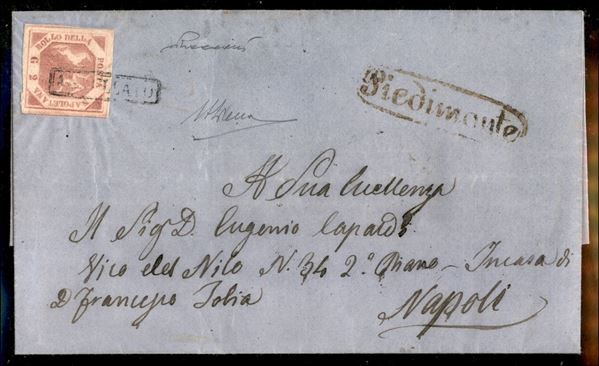 BOLLO DELLA
POSTA
NAPOLETANA
G 2
ANNULLATO
Piedimonte
A Sua Eccellenza
Il Sig D. Eugenio Capaldi
Vico del Nilo N. 34 2º Piano – In casa di
D Francesco Tolia
Napoli